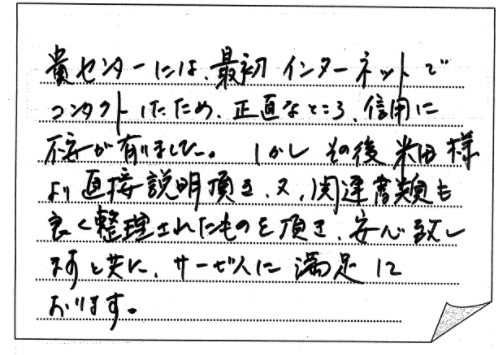 貴センターには、最初インターネットで
コンタクトしたため、正直なところ、信用に
不安が有りました。しかしその後米田様
より直接説明頂き、又、関連書類も
良く整理されたものを頂き、安心致し
ますと共に、サービスに満足して
おります。